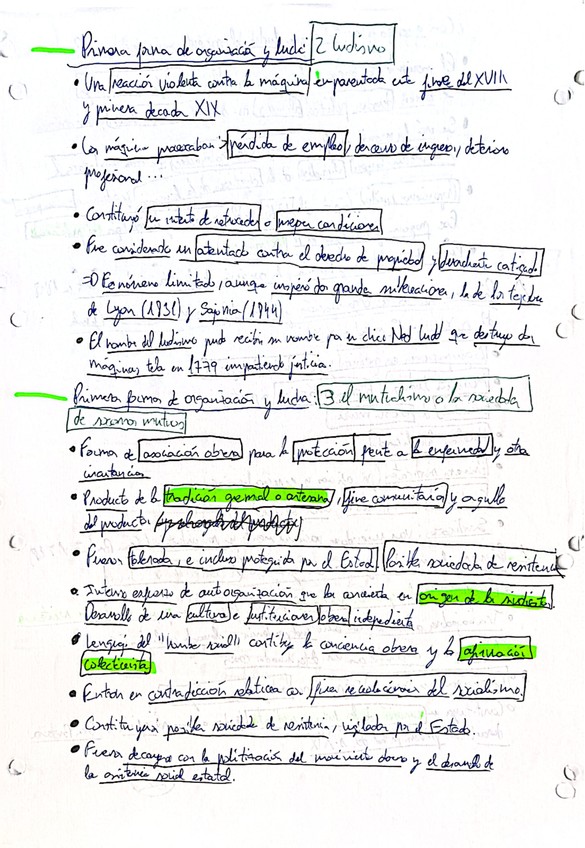 Primera forma de organización y lucha: 2 ludismo
• Una reacción violenta contra la máquina emparentada ente fines del XVIII
y primera decada XIX
• Las máquinas provocaban > pérdida de empleo, descenso de ingresos, deterioro
profesional...
• Constituyó un intento de retroceder o mejorar condiciones
• Fue considerado un atentado contra el derecho de propiedad y duramente castigado
⇒ Fenómeno limitado, aunque inspiró dos grandes sublevaciones, la de los tejedores
de Lyon (1931) y Sajonia (1944)
• El nombre del ludismo pudo recibir su nombre por un chico Ned Ludd que destruyo dos
máquinas tela en 1779 impartiendo justicia.
Primera forma de organización y lucha: 3 el mutualismo o las sociedades
de socorros mutuos
• Forma de asociación obrera para la protección frente a la enfermedad y otras
circunstancias
• Producto de la tradición gremial o artesana, fines comunitarios y orgullo
del productor
• Fueron toleradas, e incluso protegidas por el Estado Posibles sociedades de resistencia
• Intenso esfuerzo de autoorganización que las convierte en origen de los sindicatos
Desarrollo de una cultura e instituciones obreras independientes
• Lenguaje del "hombre social" contribuye la conciencia obrera y la afirmación
colectivista
• Entran en contradicción relativa con fines revolucionarios del socialismo.
• Constituyeron posibles sociedades de resistencia, vigiladas por el Estado.
• Fueron decayendo con la politización del movimiento obrero y el desarrollo de
la asistencia social estatal.